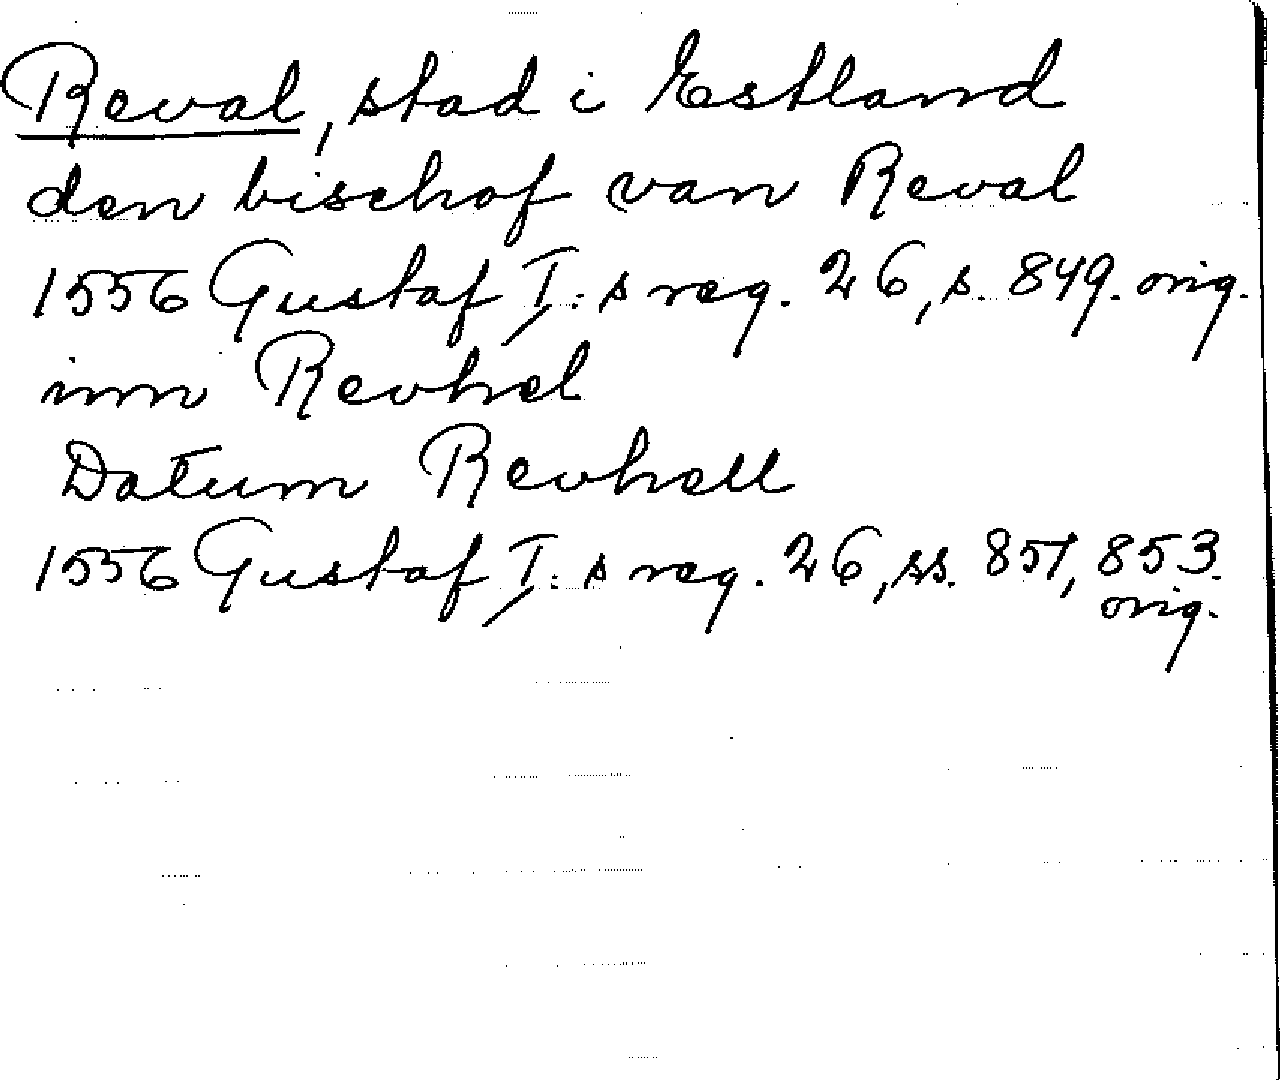 Reval, stad i Estland
den bischof van Reval
1556 Gustaf I:s reg. 26, s. 849. orig.
inn Revhel
Datum Revhell
1556 Gustaf I:s reg. 26, ss. 851, 853.
orig.